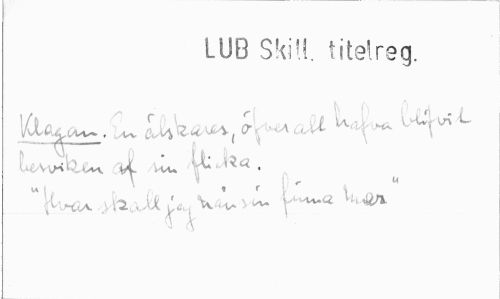 LUB Skill. titelreg.
Klagan. En älskares, öfver att hafva blifvit
besviken af sin flicka.
"Hvar skall jag nånsin finna mer"